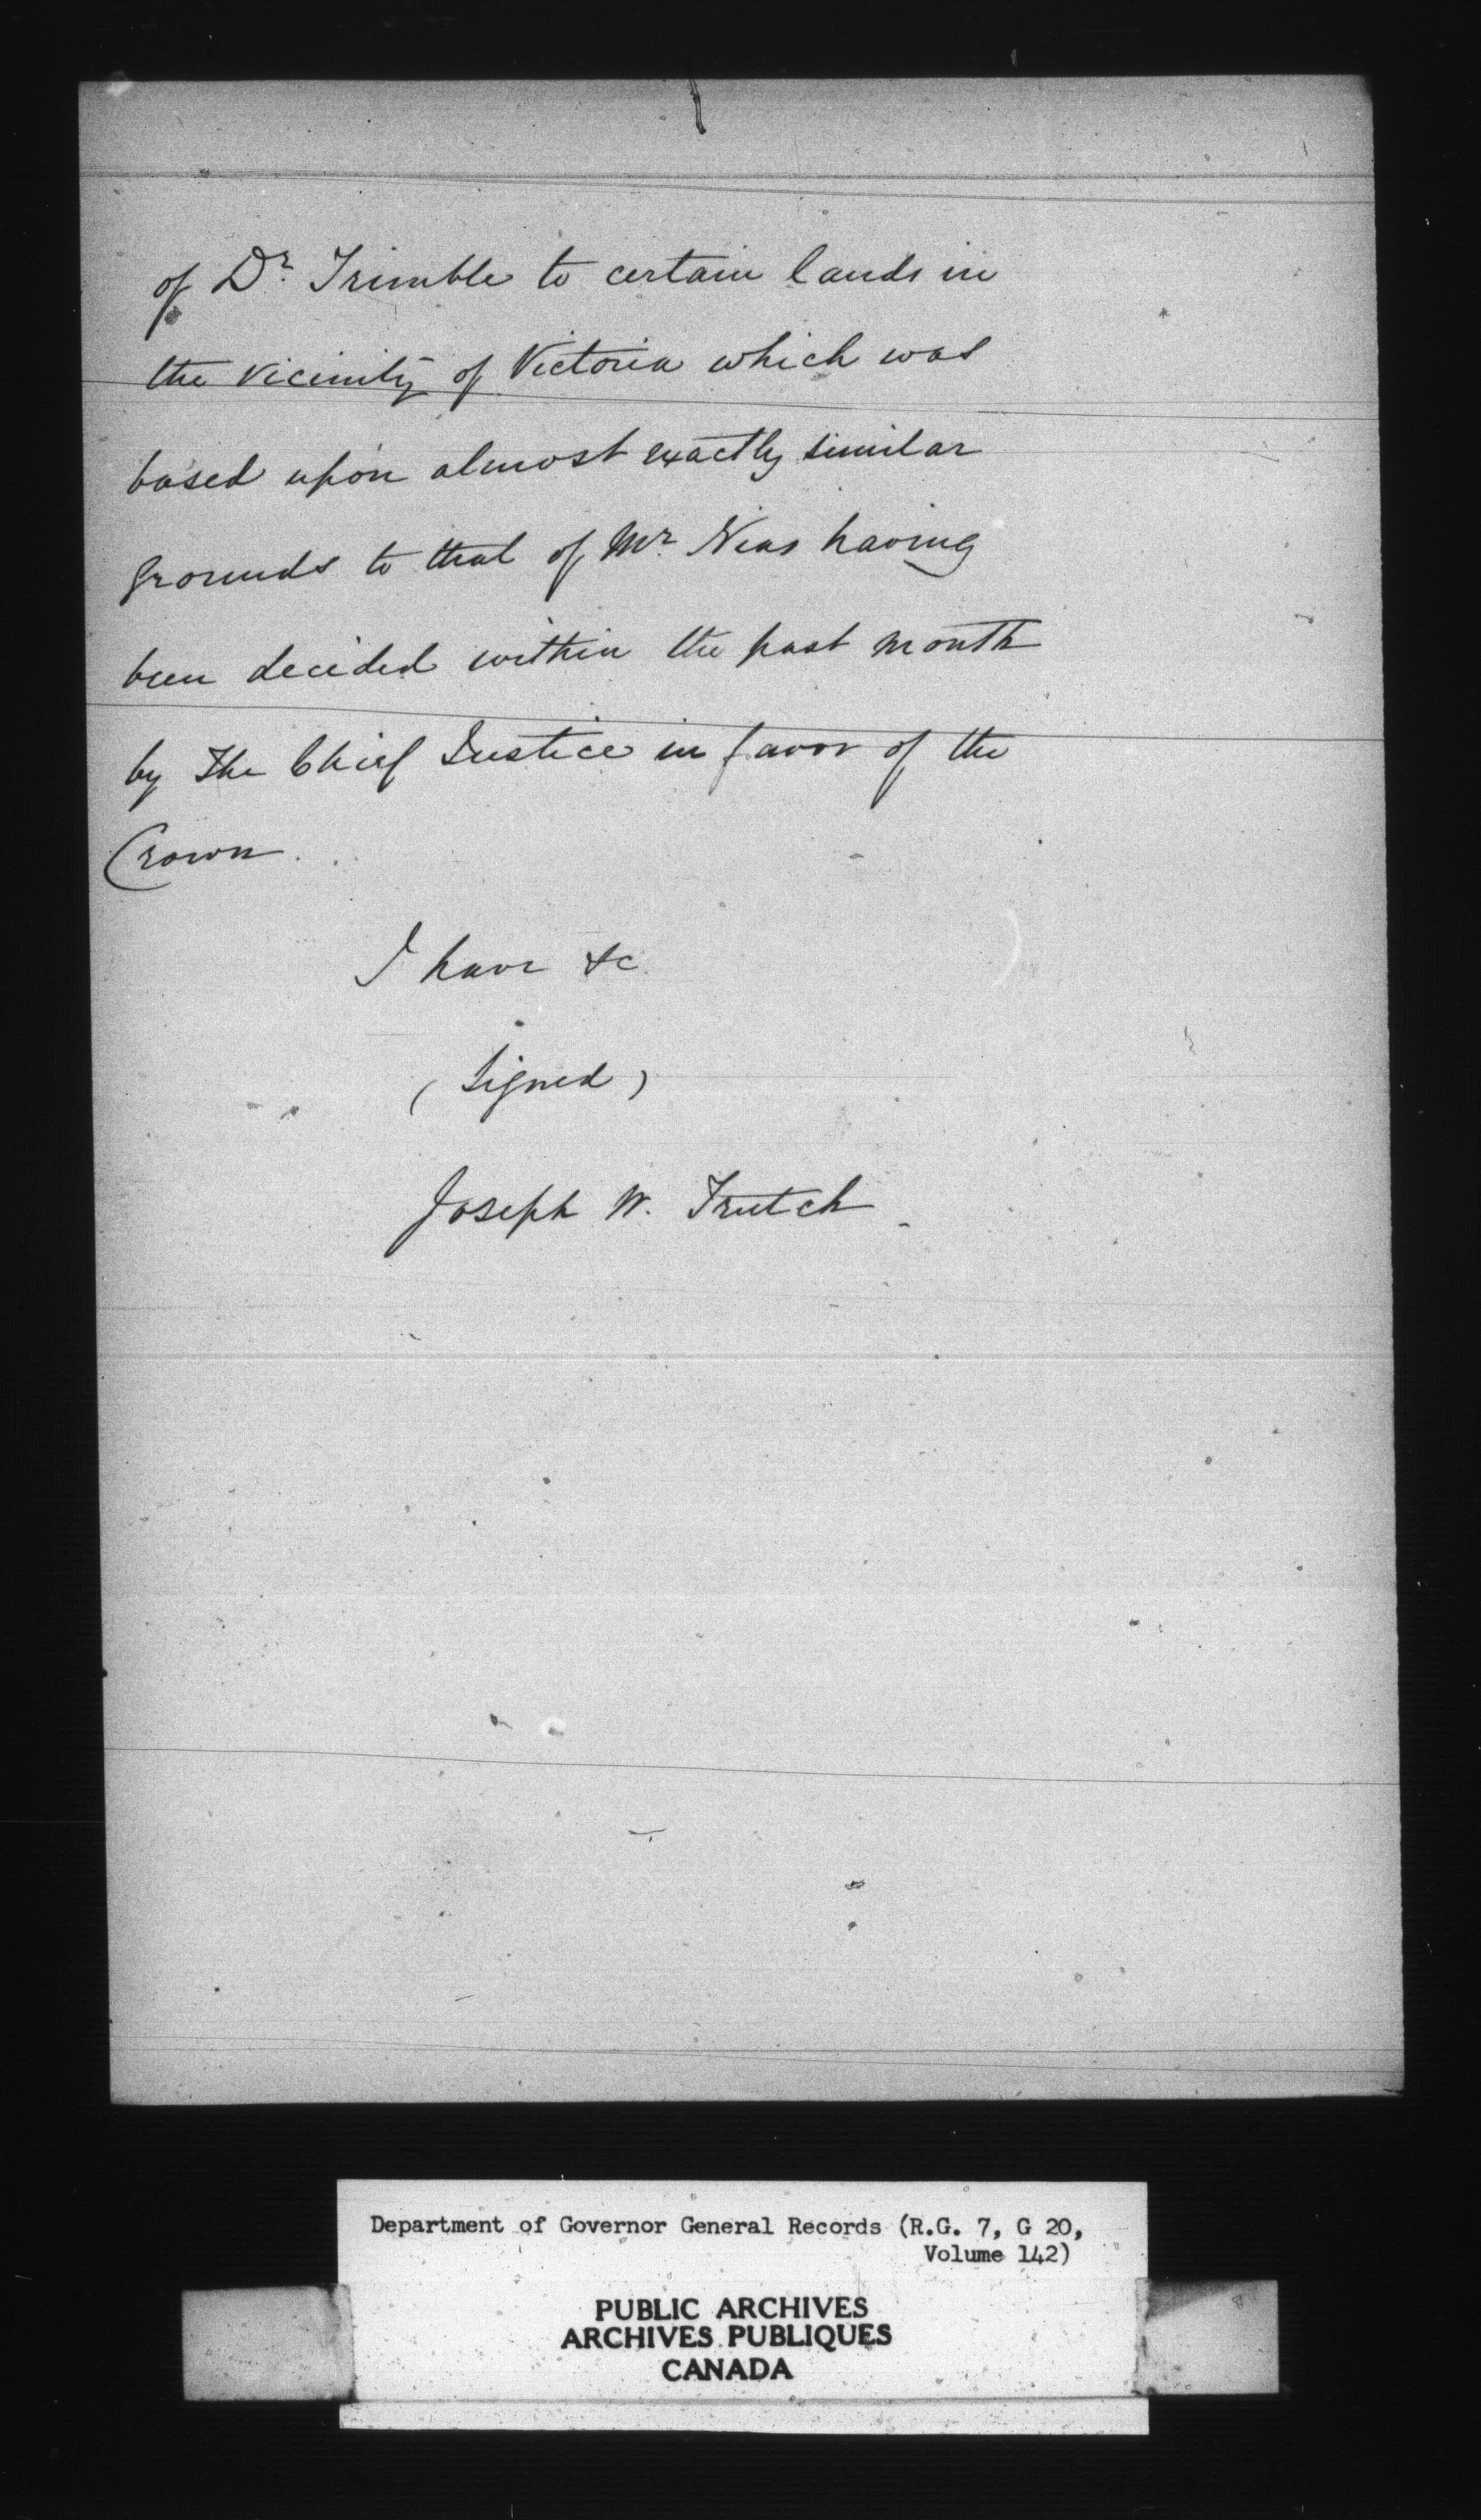 of Dr. Trimble to certain lands in
the vicinity of Victoria which was
based upon almost exactly similar
grounds to that of Mr. Nias having
been decided within the past month
by the Chief Justice in favor of the
Crown.
I have &c.
(Signed)
Joseph W. Trutch
Department of Governor General Records (R.G. 7, G 20,
Volume 142)
PUBLIC ARCHIVES
ARCHIVES PUBLIQUES
CANADA